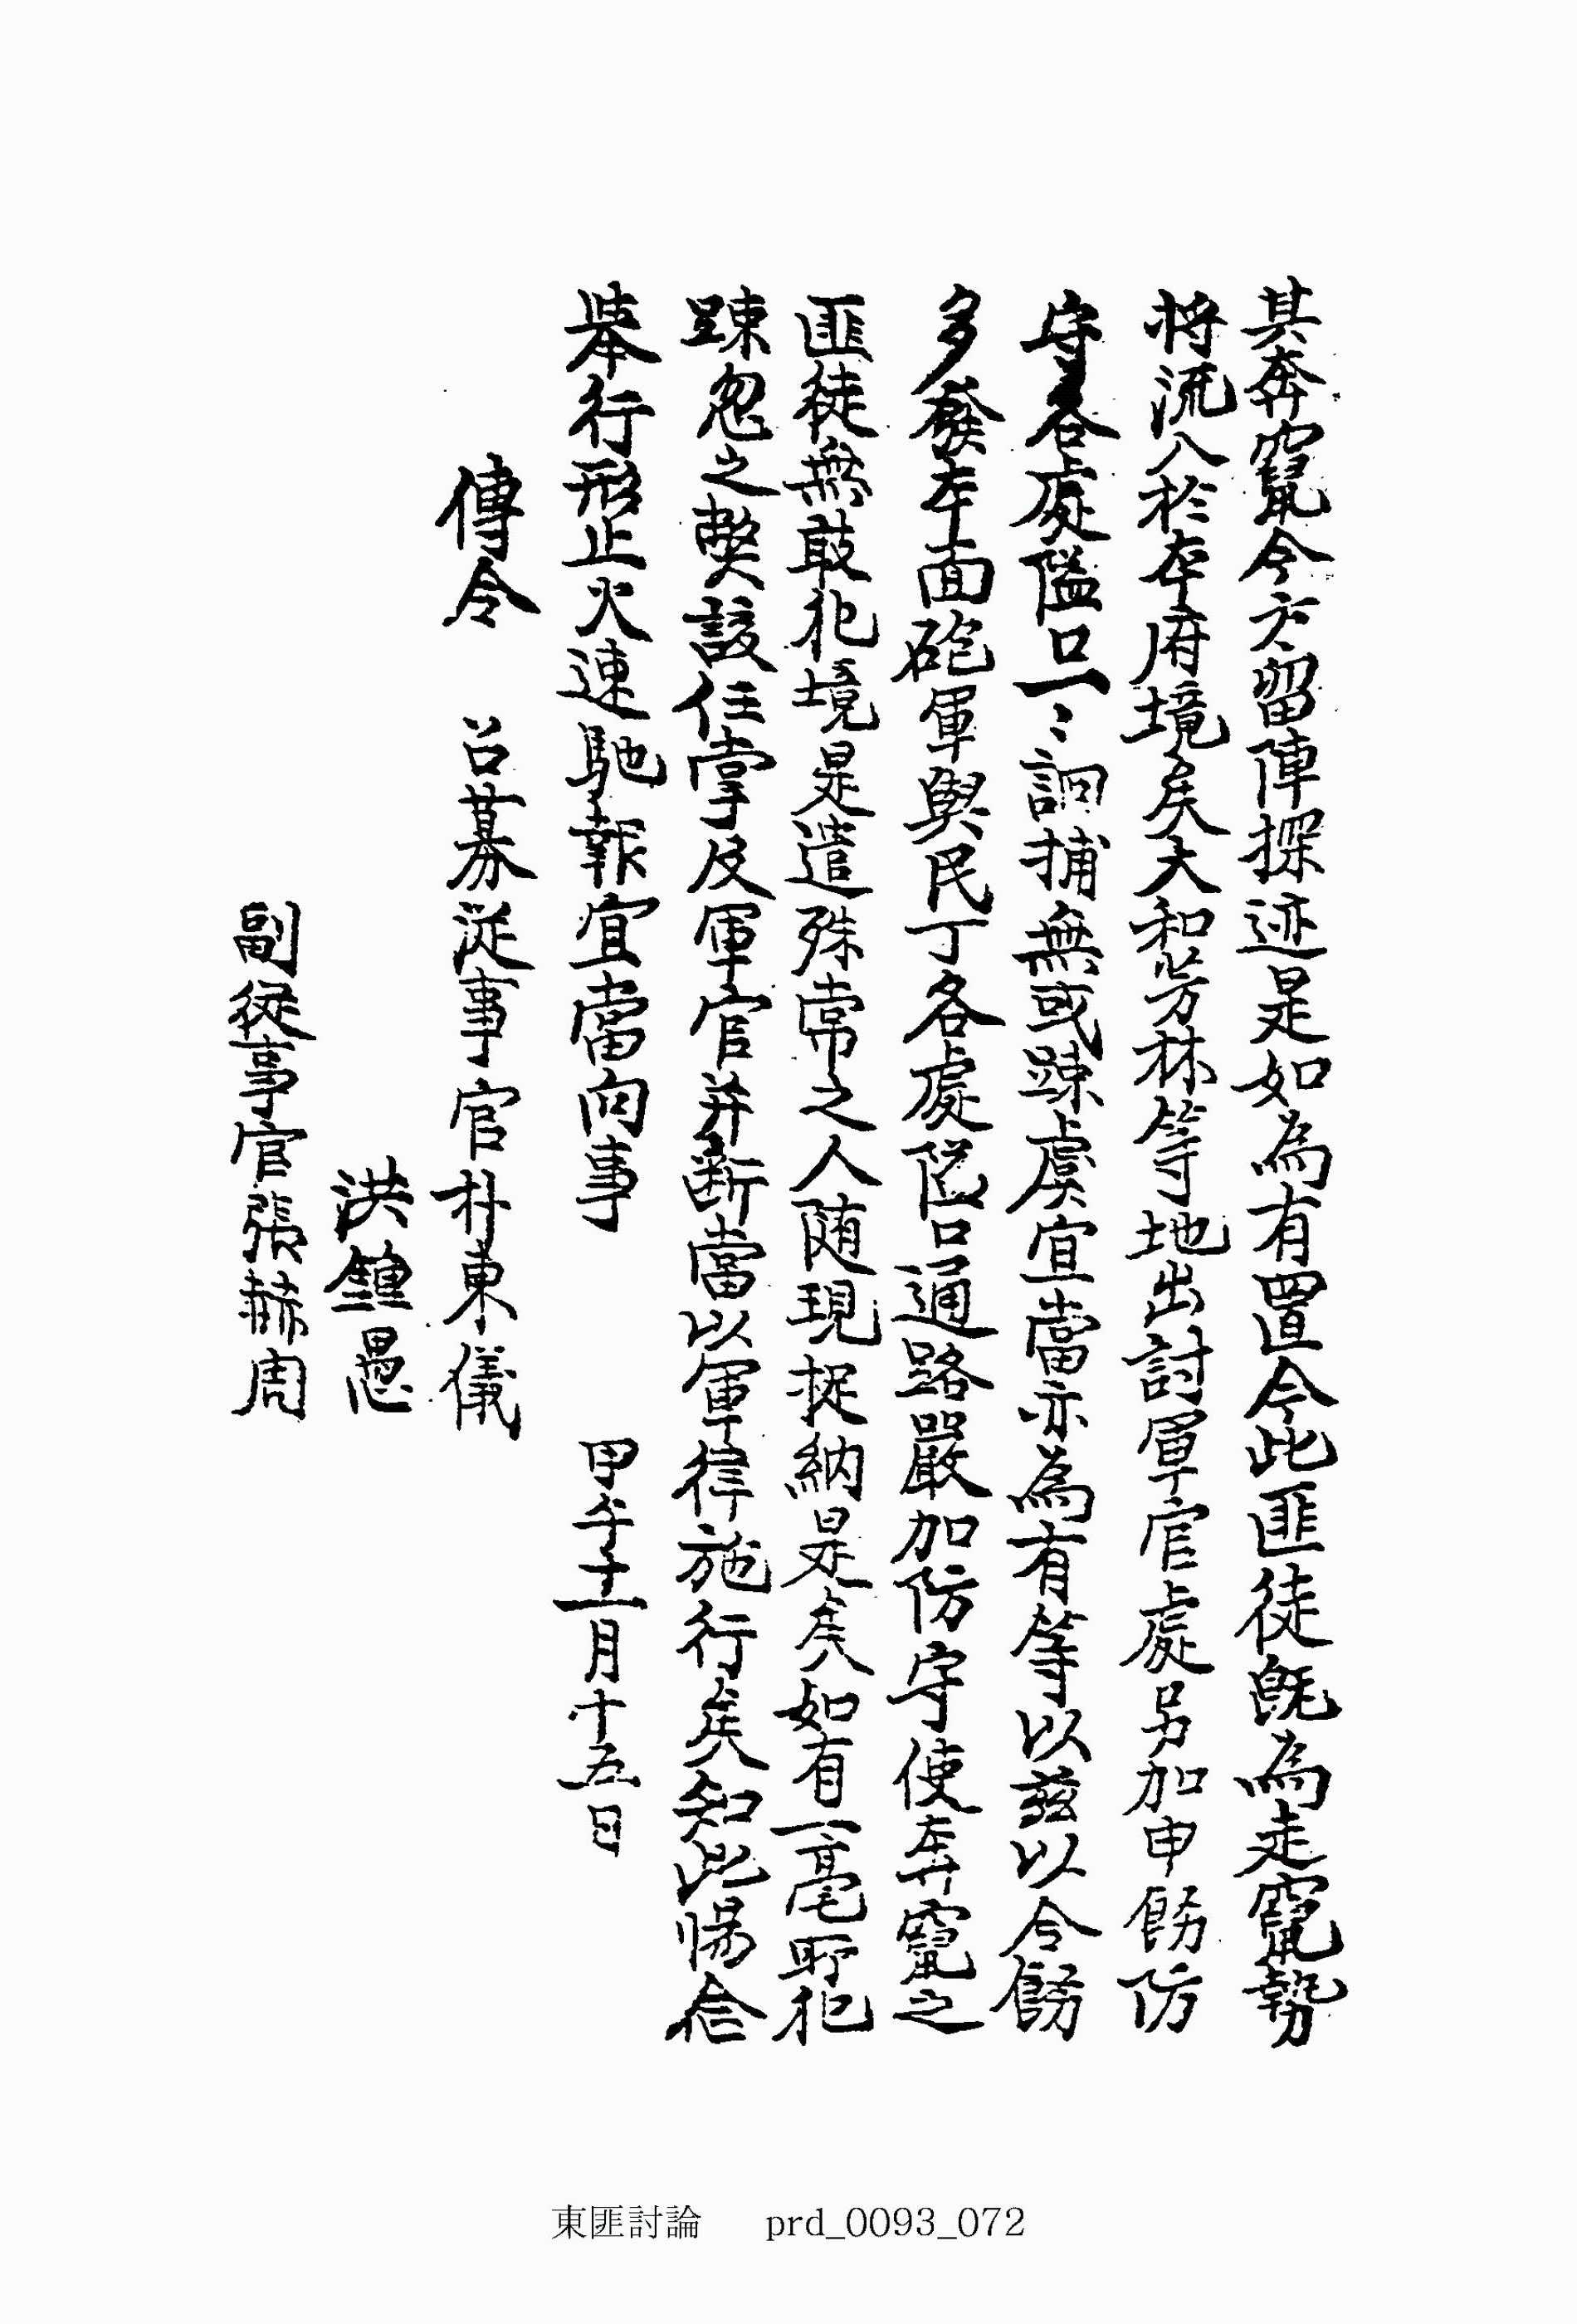 其奔竄今方留陣探迹是如為有置今此匪徒旣為走竄勢
将流入於本府境矣大和芳林等地出討軍官處另加申飭防
守各處隘口一〻詗捕無或踈虞宜當亦為有等以玆以令飭
多發本面砲軍與民丁各處隘口通路嚴加防守使奔竄之
匪徒無敢犯境是遣殊常之人随現捉納是矣如有一毫耶犯
踈忽之弊該任掌及軍官并断當以軍律施行矣知此惕念
擧行形止火速馳報宜當向事 甲午十一月十五日
傳令 召募從事官朴東儀
洪鍾愚
副從事官張赫周
東匪討論 prd_0093_072